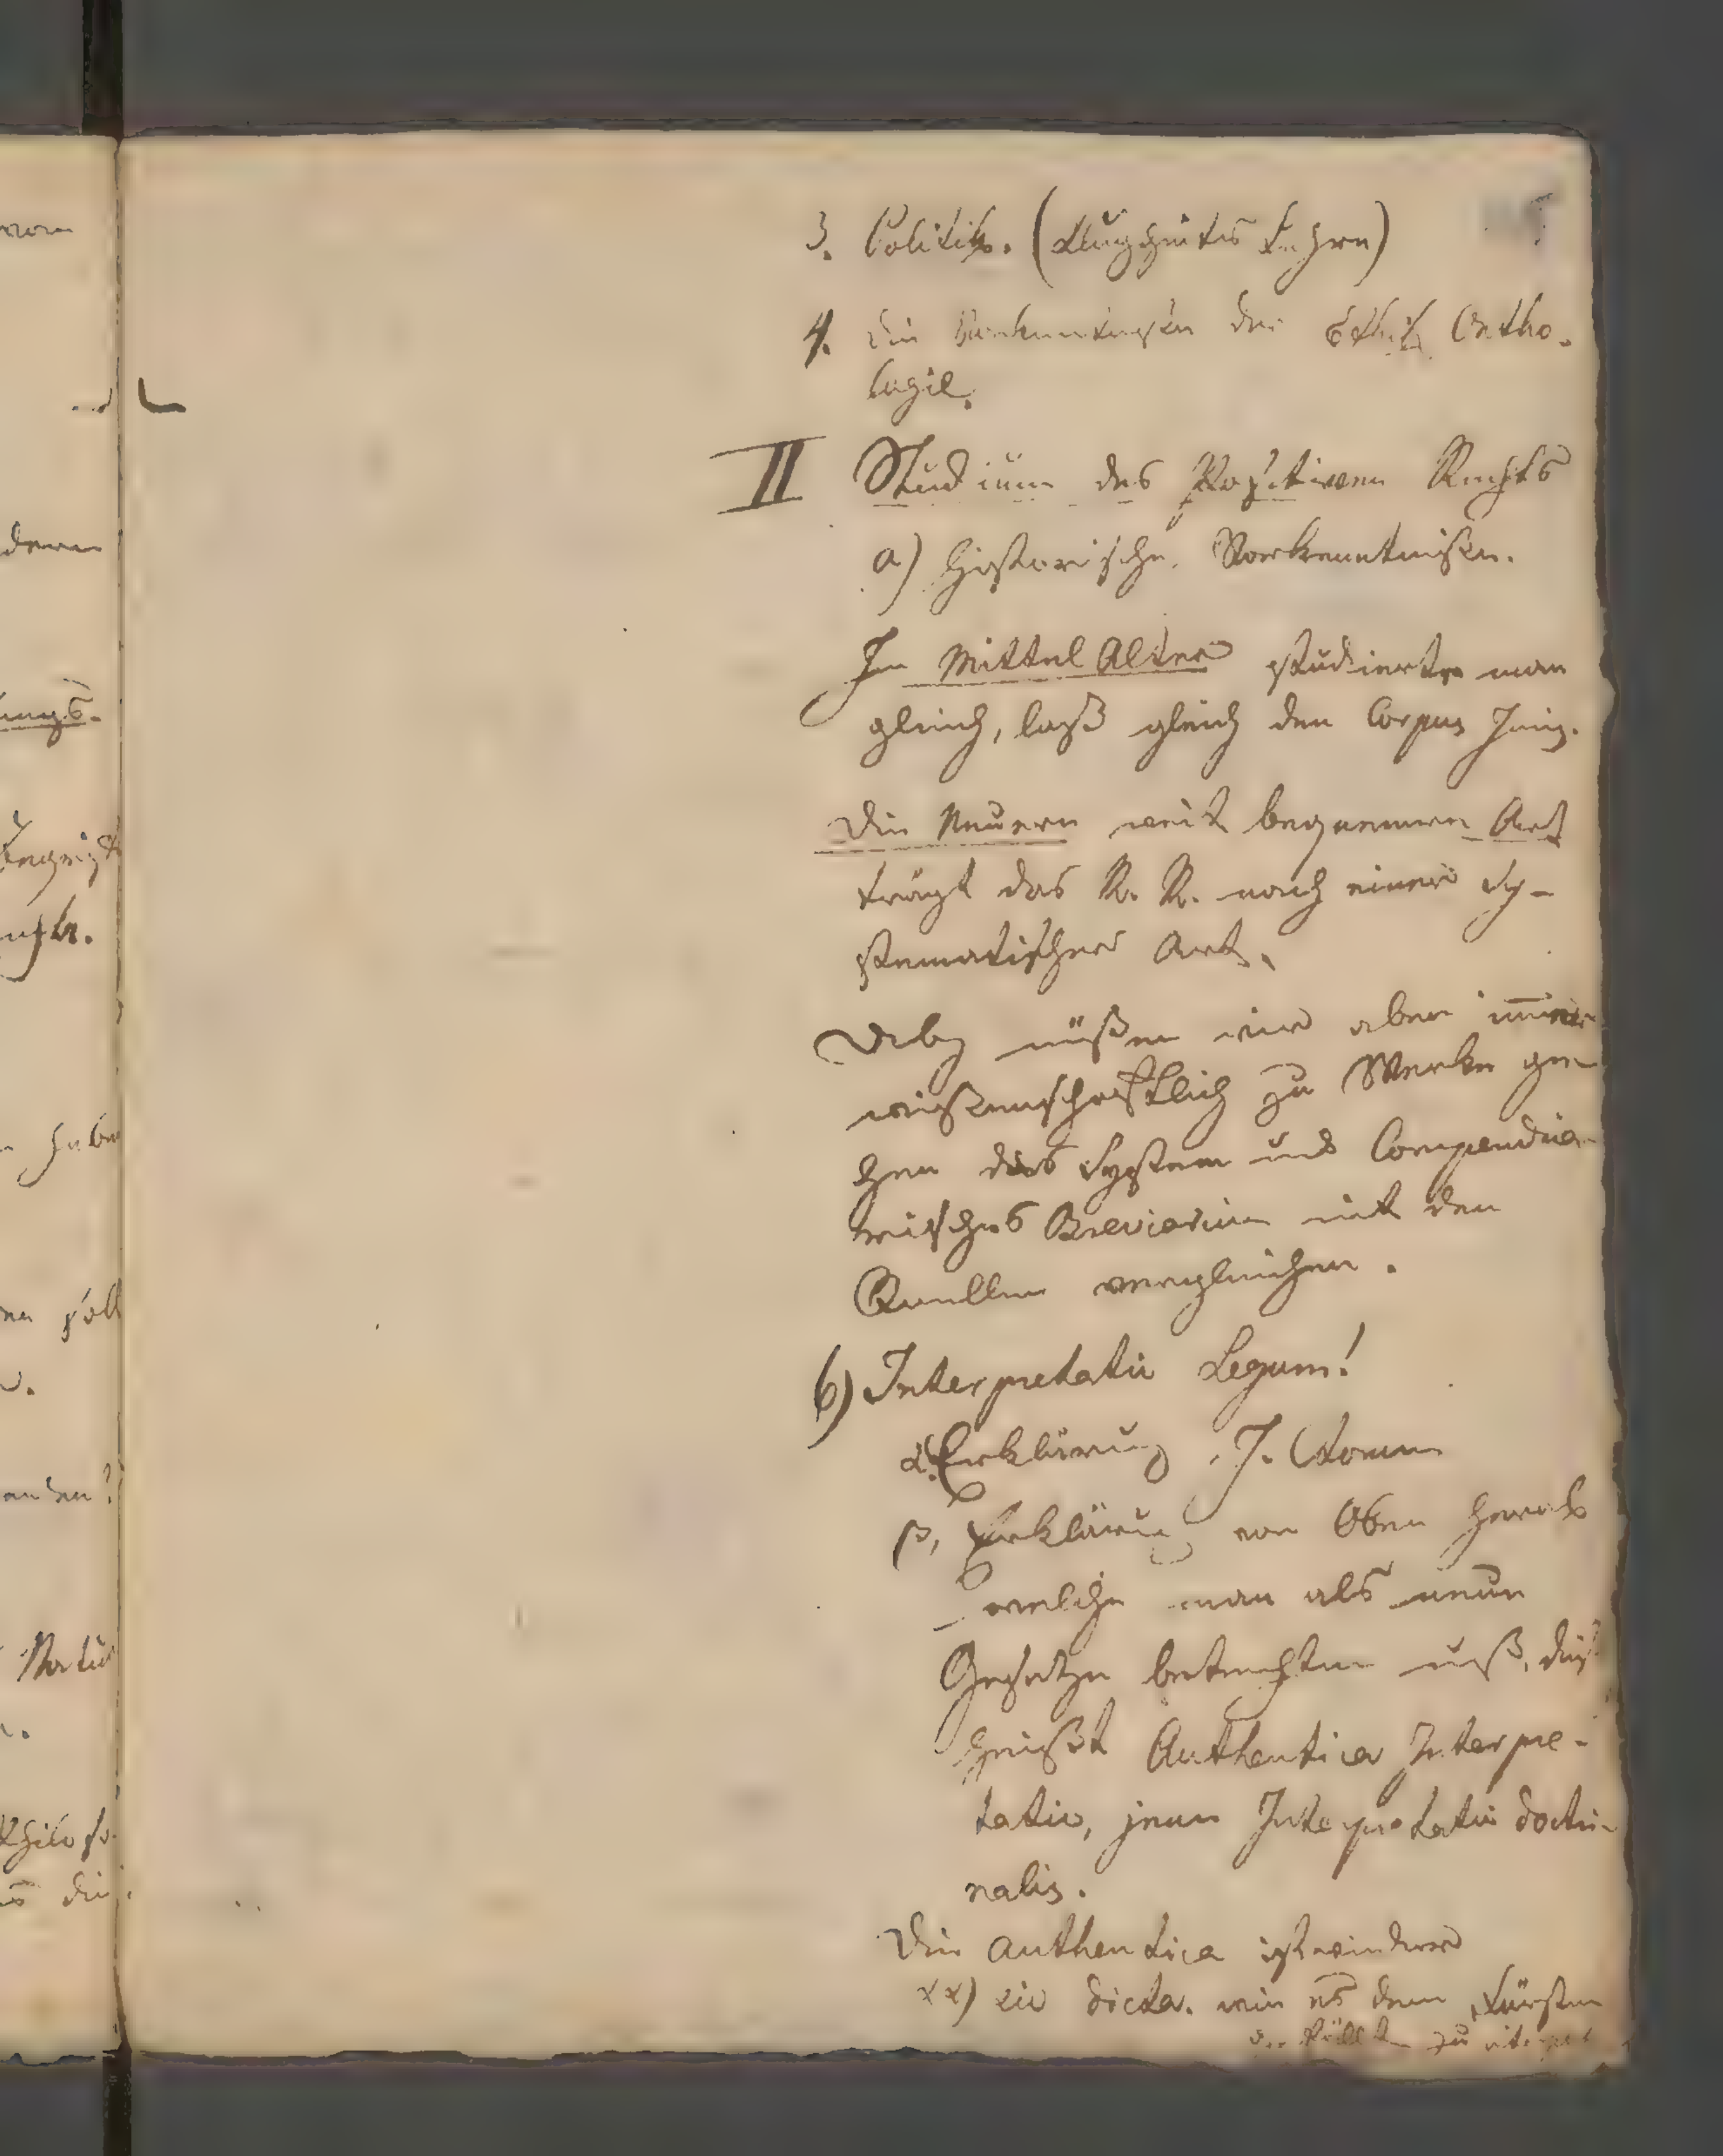 3. Politik. (Klugheits Lehre)
4. Die der Ethik Ortho-
logie.
II Studium des Positiven Rechts
a) Historische Vorkenntnißen.
Im Mittel Alter studierte man
gleich, laß gleich den Corpus Juris.
Die Neuern weit bequemere Art
trägt das R. R. nach einer sy-
stematischer Art.
Dabey müßen wir aber immer
wißenschaftlich zu Werke ge-
hen das System und Compendia-
risches Breviarium mit den
Quellen vergleichen.
b) Interpretatio Legum!
α. Erklärung J. Ctorum
β, Erklärung von Oben herab
welche man als neue
Gesetze betrachten muß, dies
heißt Authentica Interpre-
tatio, jene Interpretatio doctri-
nalis.
Die authentica ist wieder
αα) sic dicta. wie es dem Fürsten
zu